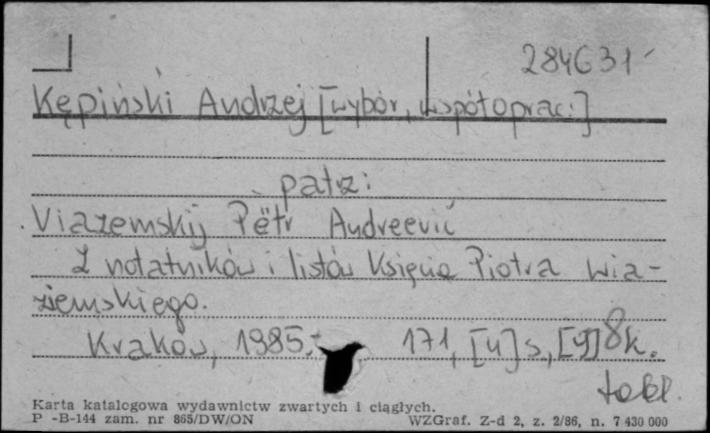 284631
Kępiński Andrzej [wybór, współoprac.]
patrz:
Viazemskij Pëtr Andreevič
Z notatników i listów Księcia Piotra Wia-
ziemskiego.
Kraków, 1985. 171, [4] s., [9] 8 k.
tabl.
Karta katalogowa wydawnictw zwartych i ciągłych.
P -B-144 zam. nr 865/DW/ON WZGraf. Z-d 2, z. 2/86, n. 7 430 000